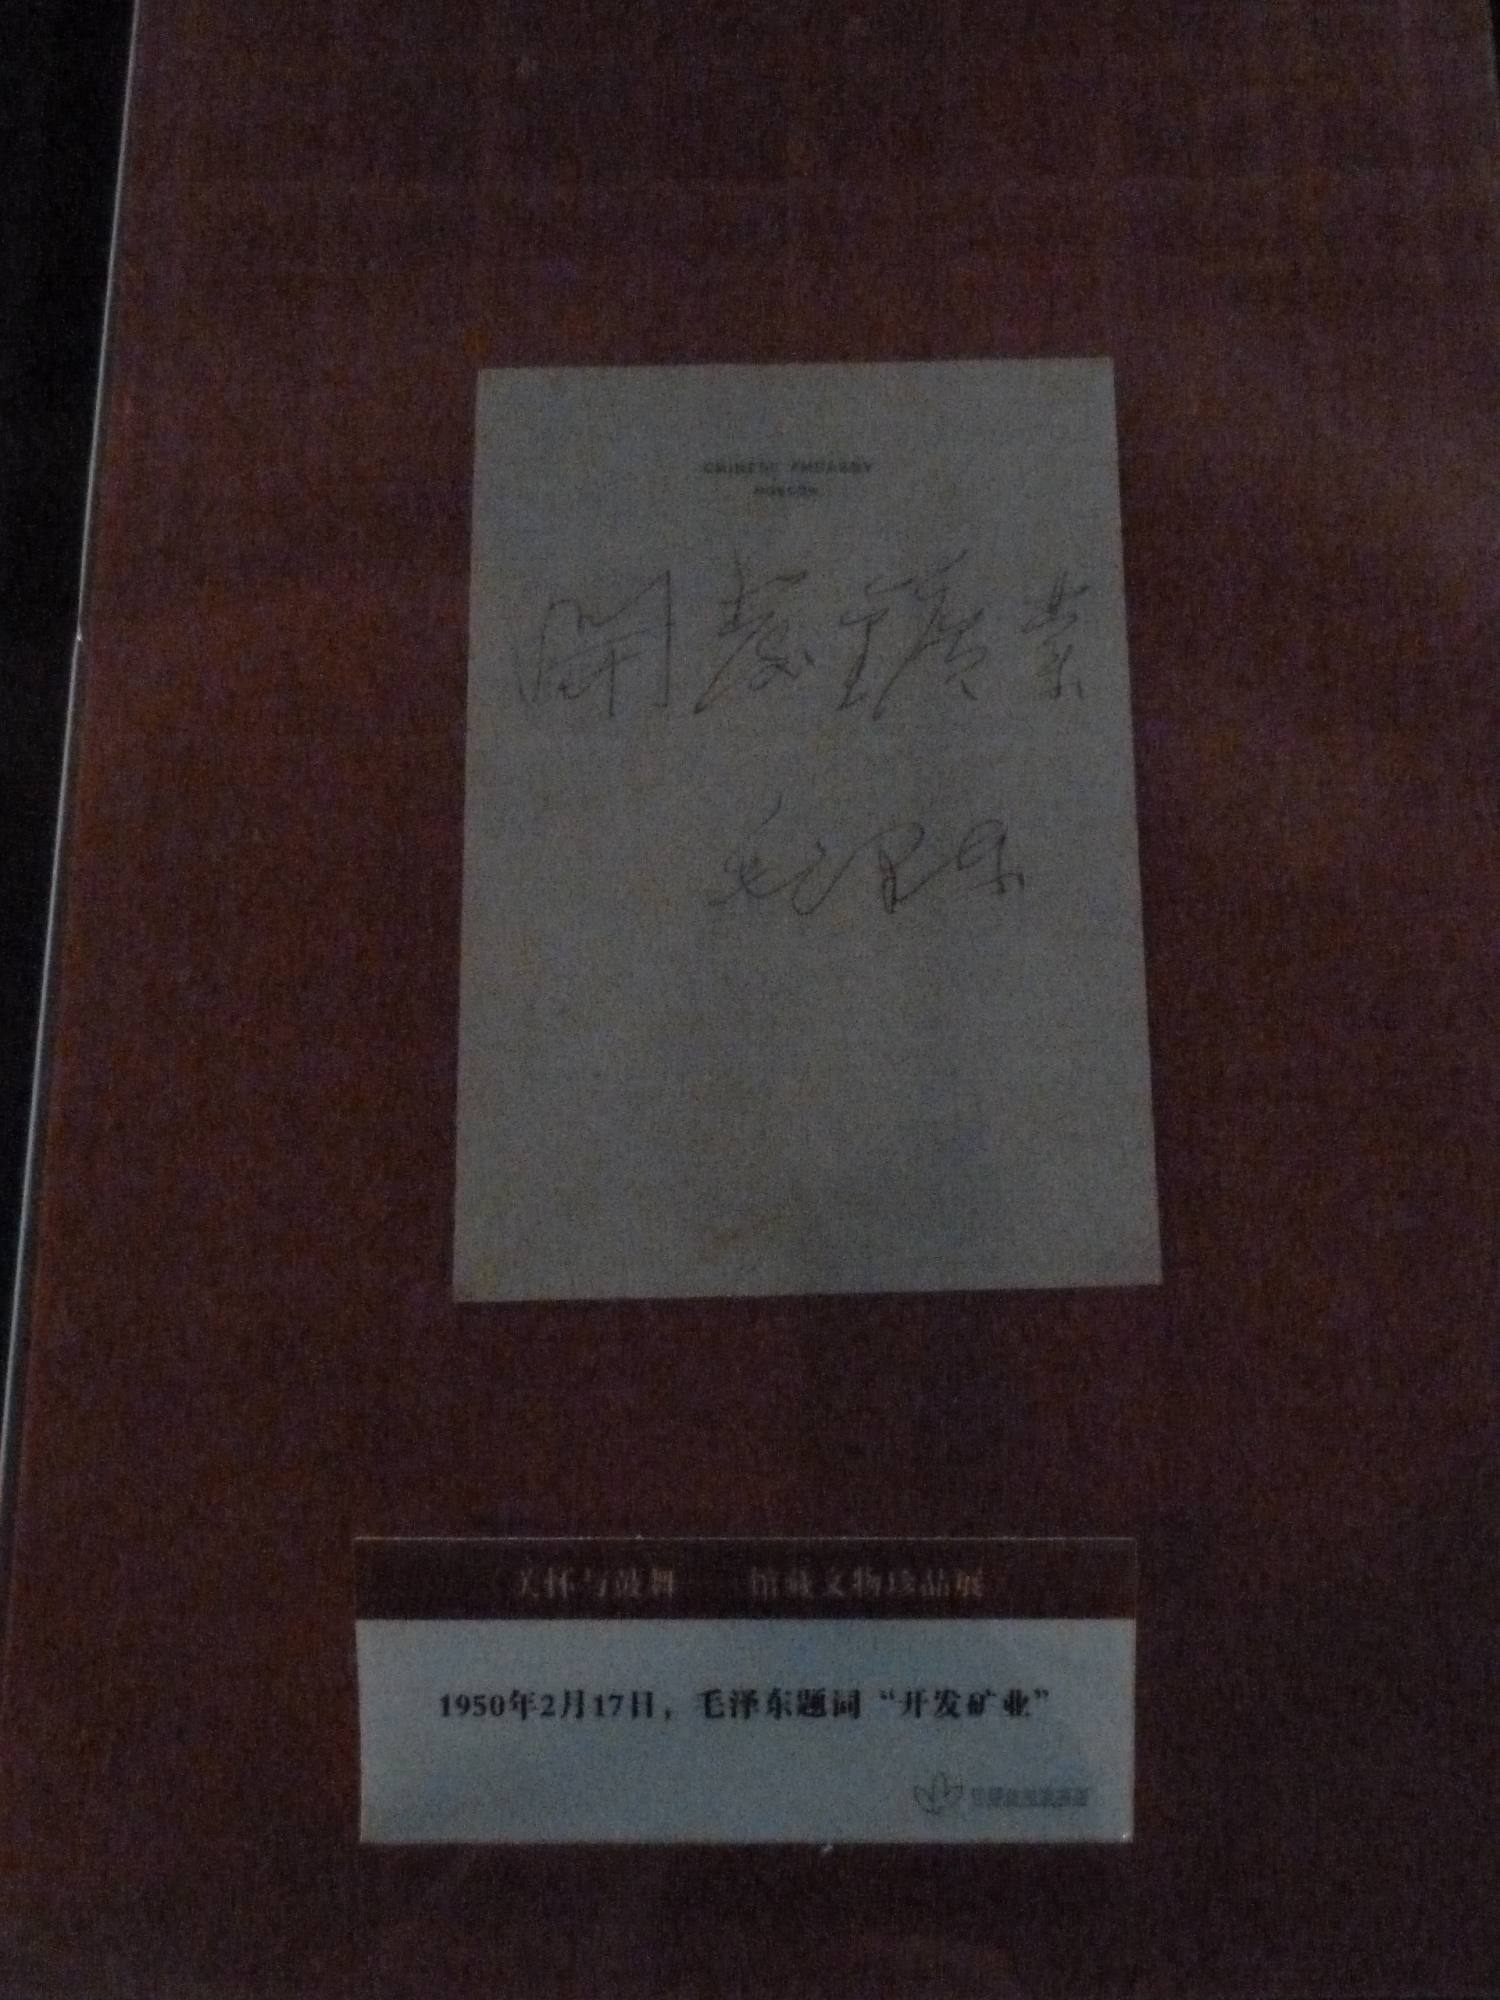 CHINESE EMBASSY
MOSCOW
開發鑛業
毛澤东
关怀与鼓舞——馆藏文物珍品展
1950年2月17日，毛泽东题词“开发矿业”